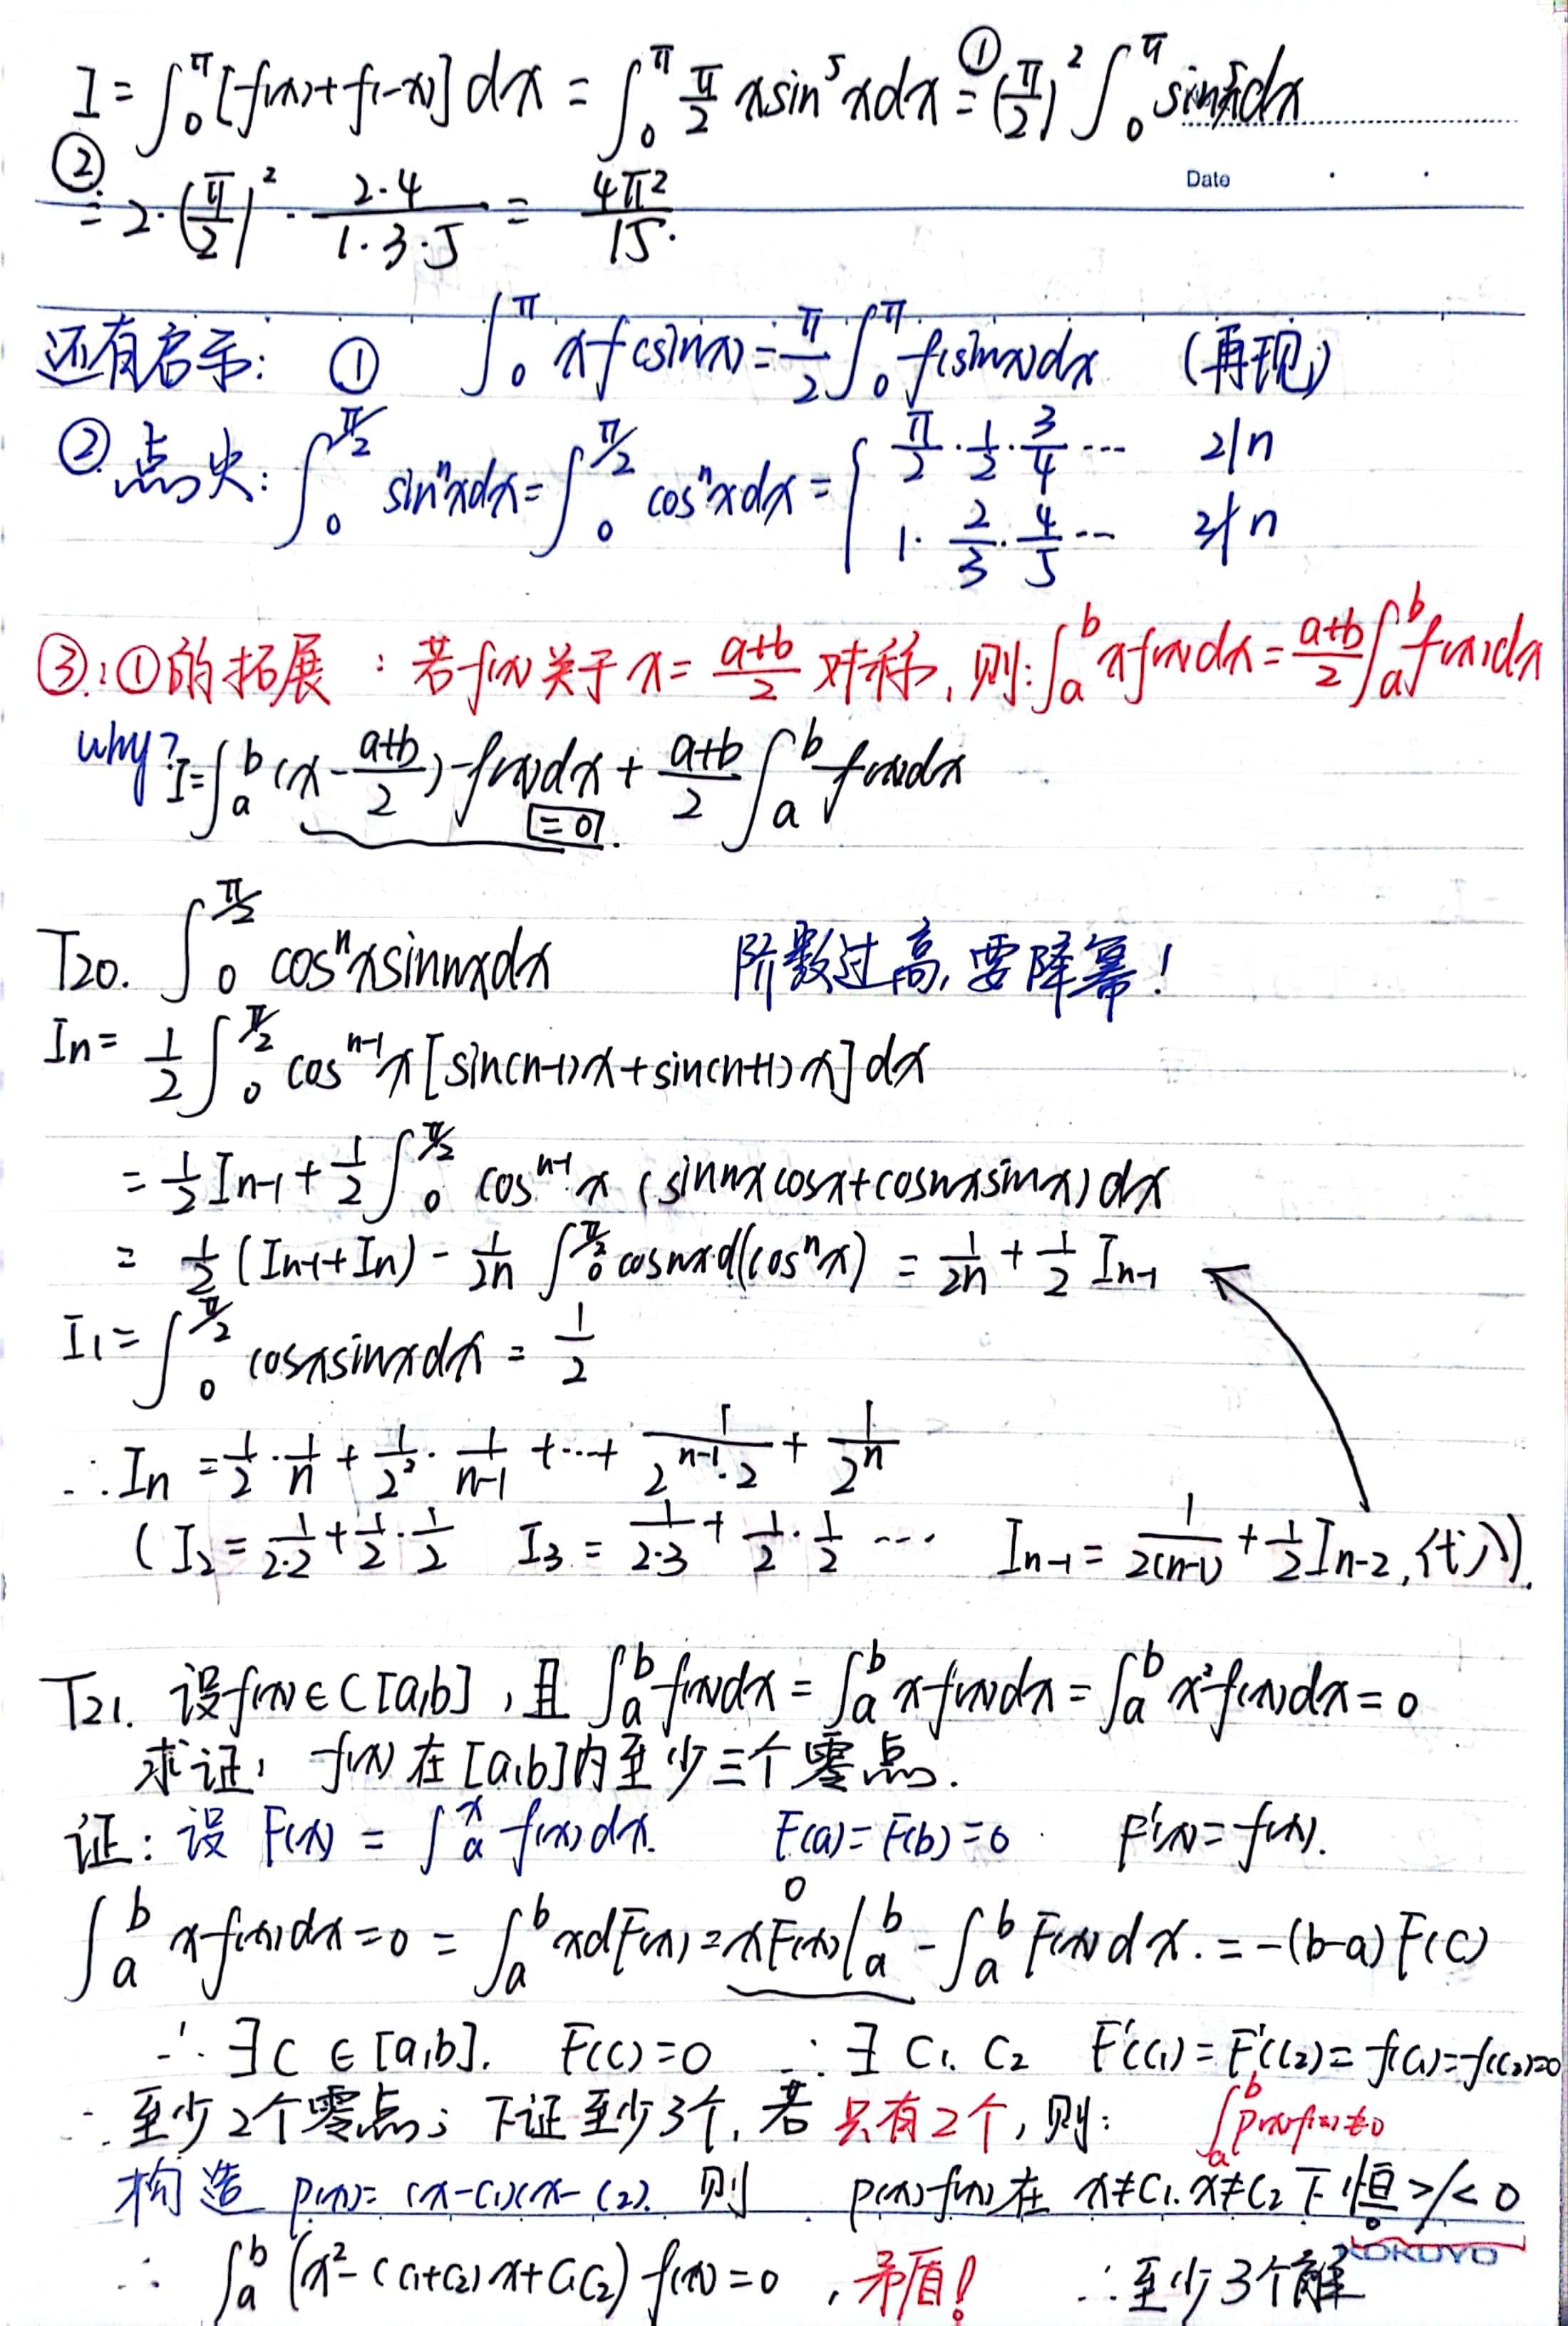 I = ∫₀^π [f(x)+f(-x)] dx = ∫₀^π π/2 x sin⁵x dx ①= (π/2)² ∫₀^π sin⁵x dx
Date
②= 2·(π/2)²·(2·4)/(1·3·5) = 4π²/15.
还有启示: ① ∫₀^π x f(sinx) = π/2 ∫₀^π f(sinx)dx (再现)
② 点火: ∫₀^{π/2} sinⁿx dx = ∫₀^{π/2} cosⁿx dx = { π/2·1/2·3/4 ··· 2|n
1·2/3·4/5 ··· 2∤n
③: ①的拓展 : 若f(x)关于 x = (a+b)/2 对称, 则: ∫ₐᵇ x f(x)dx = (a+b)/2 ∫ₐᵇ f(x)dx
why? I = ∫ₐᵇ (x - (a+b)/2) f(x)dx + (a+b)/2 ∫ₐᵇ f(x)dx
=0.
T20. ∫₀^{π/2} cosⁿx sinnx dx 阶数过高, 要降幂!
In = 1/2 ∫₀^{π/2} cosⁿ⁻¹x [sin(n-1)x + sin(n+1)x] dx
= 1/2 In-1 + 1/2 ∫₀^{π/2} cosⁿ⁻¹x (sinnx cosx + cosnx sinx) dx
= 1/2 (In-1 + In) - 1/2n ∫₀^{π/2} cosnx d(cosⁿx) = 1/2n + 1/2 In-1
I1 = ∫₀^{π/2} cosx sinx dx = 1/2
∴ In = 1/2·1/n + 1/2²·1/(n-1) + ··· + 1/(2ⁿ⁻¹·2) + 1/2ⁿ
(I2 = 1/(2·2) + 1/2·1/2 I3 = 1/(2·3) + 1/2·1/2 ··· In-1 = 1/(2(n-1)) + 1/2 In-2, 代入).
T21. 设f(x)∈C[a,b], 且 ∫ₐᵇ f(x)dx = ∫ₐᵇ x f(x)dx = ∫ₐᵇ x²f(x)dx = 0
求证: f(x) 在 [a,b]内至少三个零点.
证: 设 F(x) = ∫ₐˣ f(x)dx. F(a)=F(b)=0. F'(x)=f(x).
0
∫ₐᵇ x f(x)dx = 0 = ∫ₐᵇ x dF(x) = xF(x)|ₐᵇ - ∫ₐᵇ F(x)dx. = -(b-a)F(C)
∴ ∃C ∈ [a,b]. F(C)=0 ∴ ∃ C₁. C₂ F'(C₁) = F'(C₂) = f(C₁) = f(C₂)=0
∴ 至少2个零点; 下证至少3个, 若只有2个, 则: ∫ₐᵇ p(x)f(x)≠0
构造 p(x) = (x-C₁)(x-C₂). 则 p(x)f(x)在 x≠C₁. x≠C₂下恒>/<0
∴ ∫ₐᵇ (x²-(C₁+C₂)x+C₁C₂) f(x)=0, 矛盾! ∴至少3个解
KOKUYO